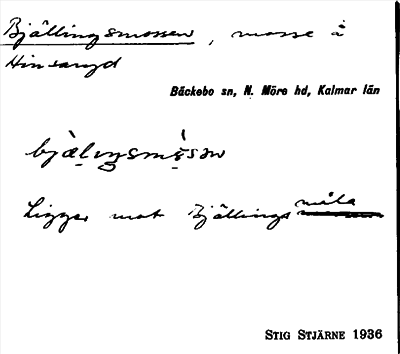 Bjällingsmossen, mosse å
Hinsaryd
Bäckebo sn, N. Möre hd, Kalmar län
Ligger mot Bjällingsmåla
STIG STJÄRNE 1936